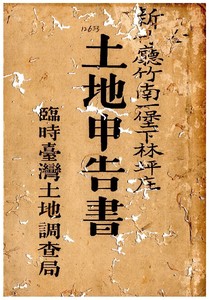 新竹廳竹南一堡下林坪庄
土地申告書
臨時臺灣土地調查局